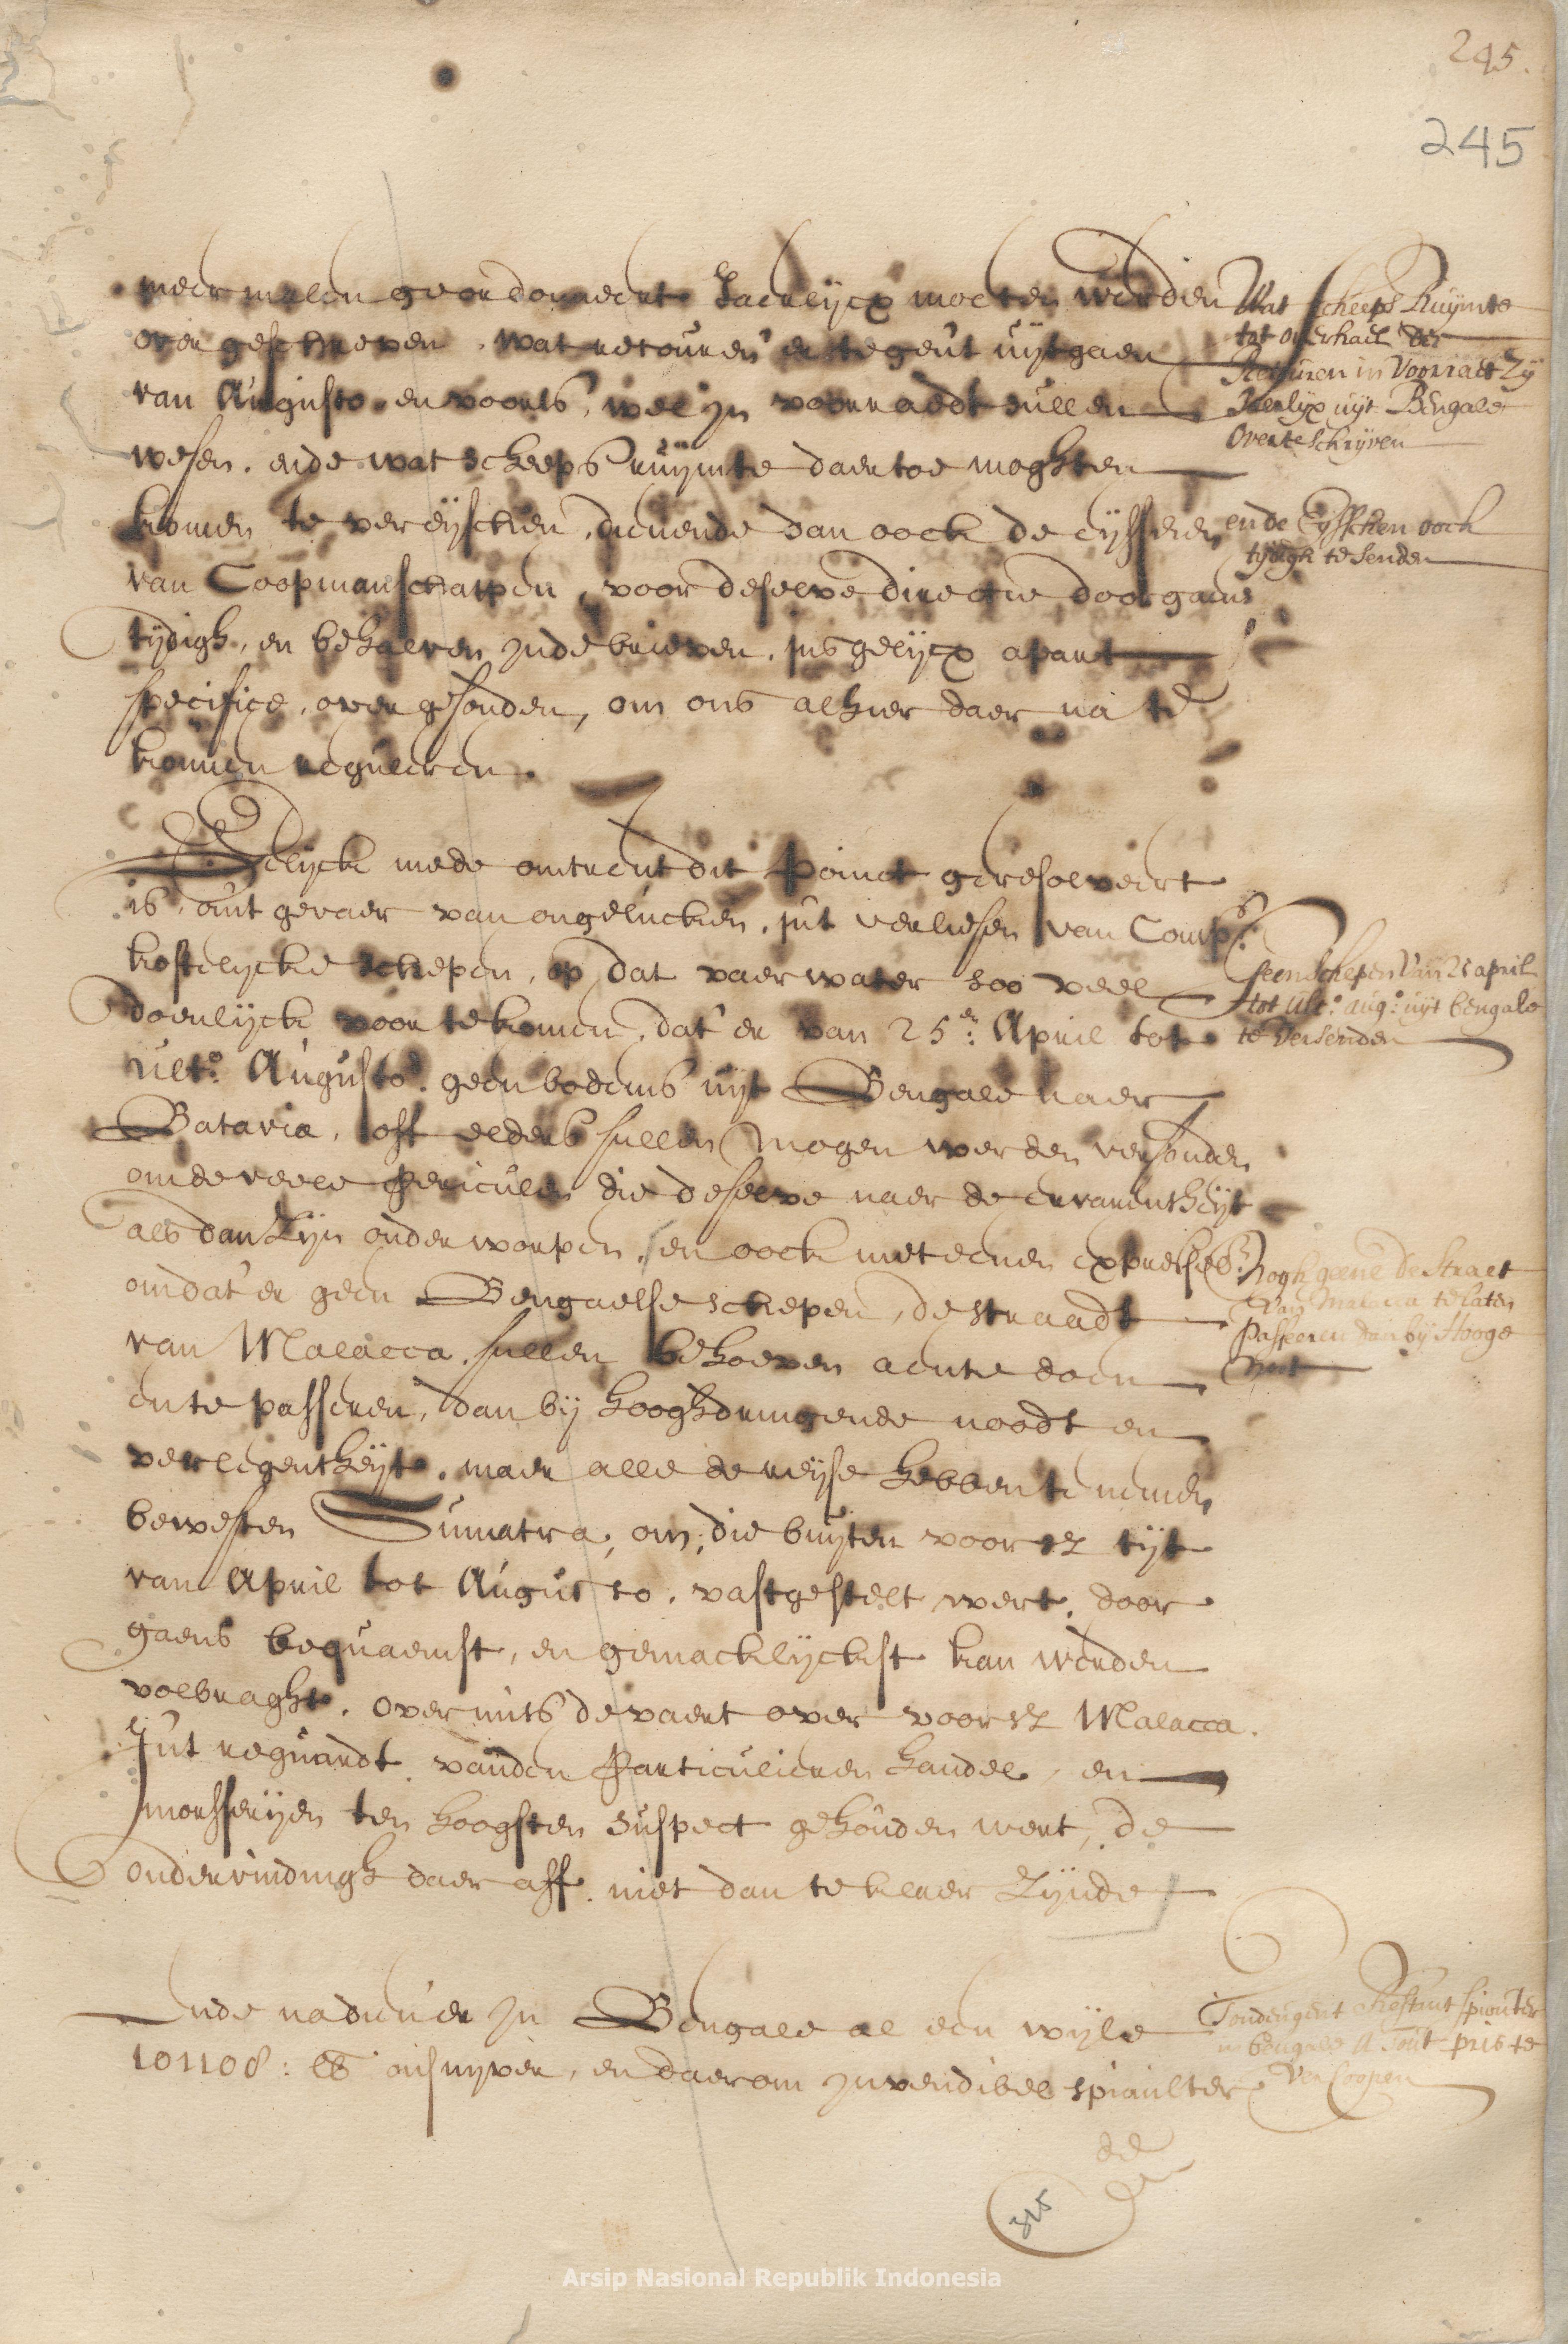 245.
245
meermalen geordonneert Jaerlijcx moeten werden
overgeschreven, wat retouren er tegent uijtgaen
van Augusto en voorts, wel in voorraadt sullen
wesen, ende wat scheeps ruijmte daer toe moghten
komen te vereijschen, dienende dan oock de eijsschen
van Coopmanschappen, voor deselve directie, doorgaens
tijdigh, en behalven inde brieven, insgelijcx apart
specifice, over gesonden, om ons alhier daer na te
konnen reguleren.
Wat scheeps Ruijmte
tot overhael der
Retouren in Voorraet Zij
Jaerlijx uijt Bengale
over te schrijven
ende Eijsschen oock
tijdigh te senden
Gelijck mede omtrent dit Poinct geresolveert
is, omt gevaer van ongelucken, int verliesen van Comps:
kostelycke schepen, op dat vaerwater soo veel
doenlijck voor te komen, dat er van 25en: April tot
ulto: Augusto, geen bodems uijt Bengale naer
Batavia, off elders sullen mogen werden versonden
om de veele periculen die deselve naer de ervarentheijt
als dan zijn onderworpen, en oock met eenen expresselijk
omdat er geen Bengaelse schepen, de straadt
van Malacca, sullen behoeven aen te doen
en te passeren, dan bij hooghdringende noodt en
verlegentheijt, maer alle de reijse hebben te nemen
bewesten Sumatra, om, die buijten voorsz tijt
van April tot Augusto, vastgestelt wert, door
gaens bequaemst, en gemacklijckst kan werden
volbraght, overmits de vaert over voorsz Malacca.
Int reguardt vanden Particulieren handel, en
morsserijen ten hoogsten suspect gehouden wert, de
ondervindingh daer aff, niet dan te klaer zijnde
geen schepen van 25 april
tot ulto: augo: uijt bengale
te versenden
Nogh geene de Straet
van Malacca te laten
passeren dan bij Hooge
noot
Ende nadien er in Bengale al een wijle
101108: lb onsuyver, en daerom invendibel spiaulter
Restant spiaulter
in bengale a tout pris te
vercoopen
de
315
Arsip Nasional Republik Indonesia